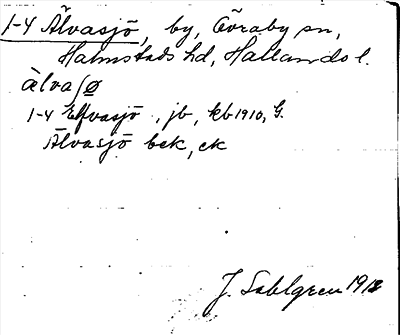 1-4 Älvasjö, by, Övraby sn,
Halmstads hd, Hallands l.
älvasø
1-4 Elfvasjö, jb, kb 1910, G.
Älvasjö bek, ek
J. Sahlgren 1912